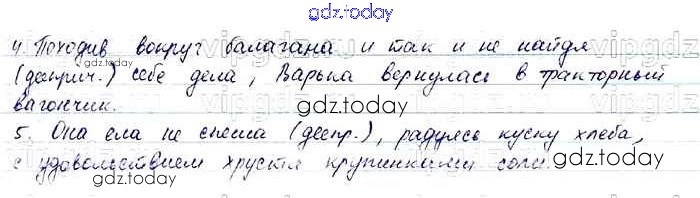 gdz.today
4. Походив вокруг балагана и так и не найдя
(дееприч.) себе дела, Варька вернулась в тракторный
вагончик.
gdz.today
5. Она ела не спеша (деепр.), радуясь куску хлеба,
с удовольствием хрустя крупинками соли.
gdz.today